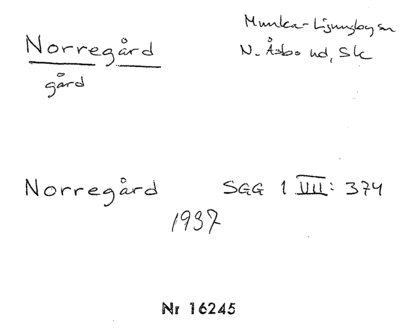 Norregård
gård
Munka-Ljungby sn
N. Åsbo hd, Sk
Norregård SGG 1 VIII: 374
1937
Nr 16245